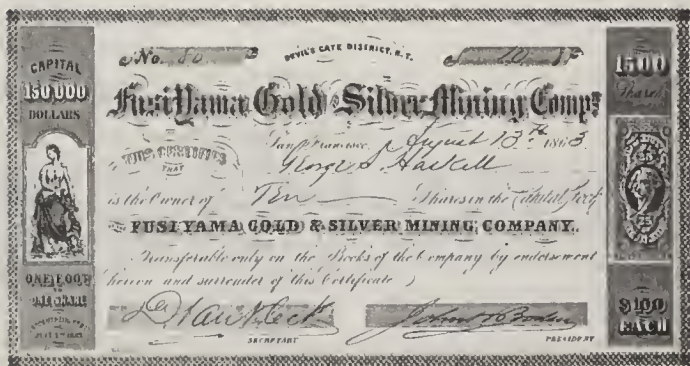 CAPITAL
150 000
DOLLARS
ONE FOOT
No. 80
DEVIL'S GATE DISTRICT, N. T.
10
Fusi Yama Gold & Silver Mining Compy
San Francisco, August 13th 1863
THIS CERTIFIES
THAT
George S. Haskell
is the Owner of Ten Shares in the Capital Stock
OF THE FUSI YAMA GOLD & SILVER MINING COMPANY.
Transferable only on the Books of the Company by endorsement
hereon and surrender of this Certificate
SECRETARY
PRESIDENT
1500
Shares
25
$100
EACH